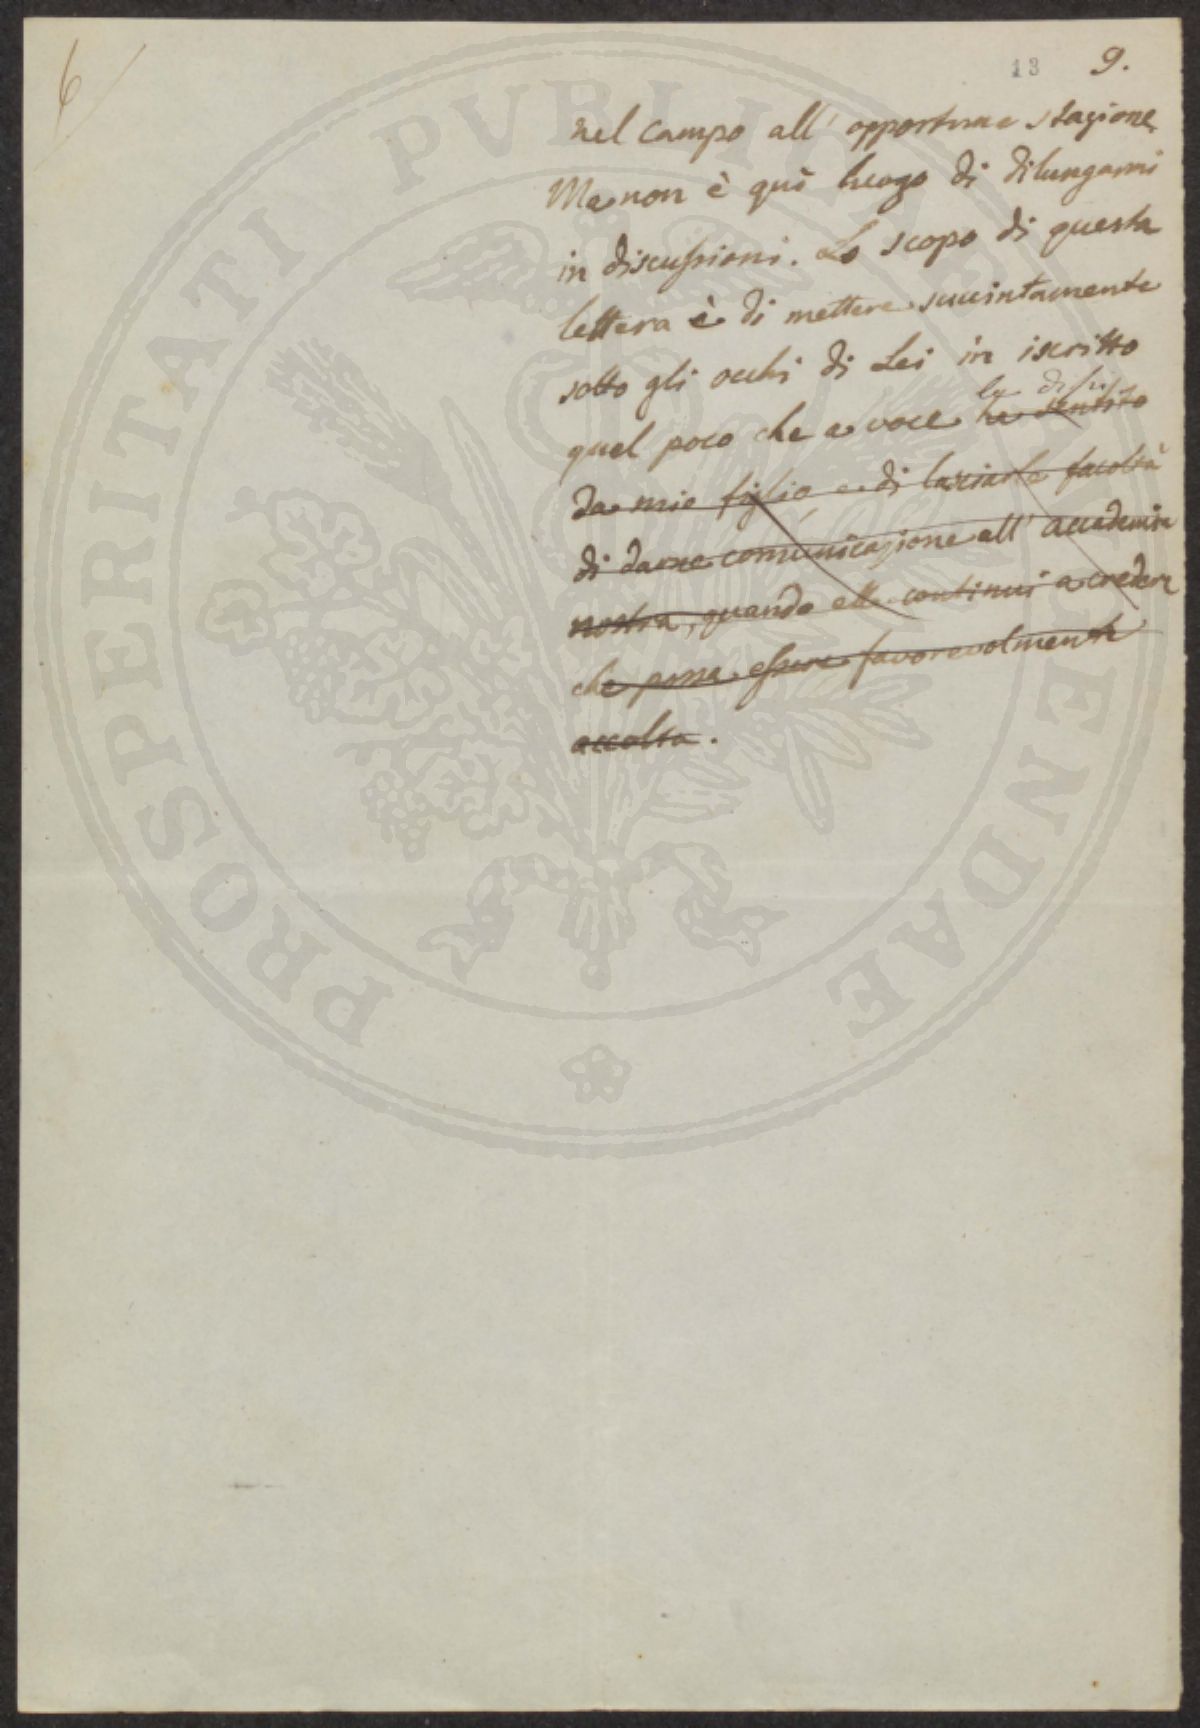 6
13 9.
nel campo all' opportuna stagione.
Ma non è quì luogo di dilungarmi
in discussioni. Lo scopo di questa
lettera è di mettere succintamente
sotto gli occhi di Lei in iscritto
quel poco che a voce ha sentito
da mio figlio, e di lasciarle facoltà
di darne comunicazione all' accademia
nostra, quando ella continui a credere
che possa essere favorevolmente
accolta.
PROSPERITATI PVBLICAE AVGENDAE